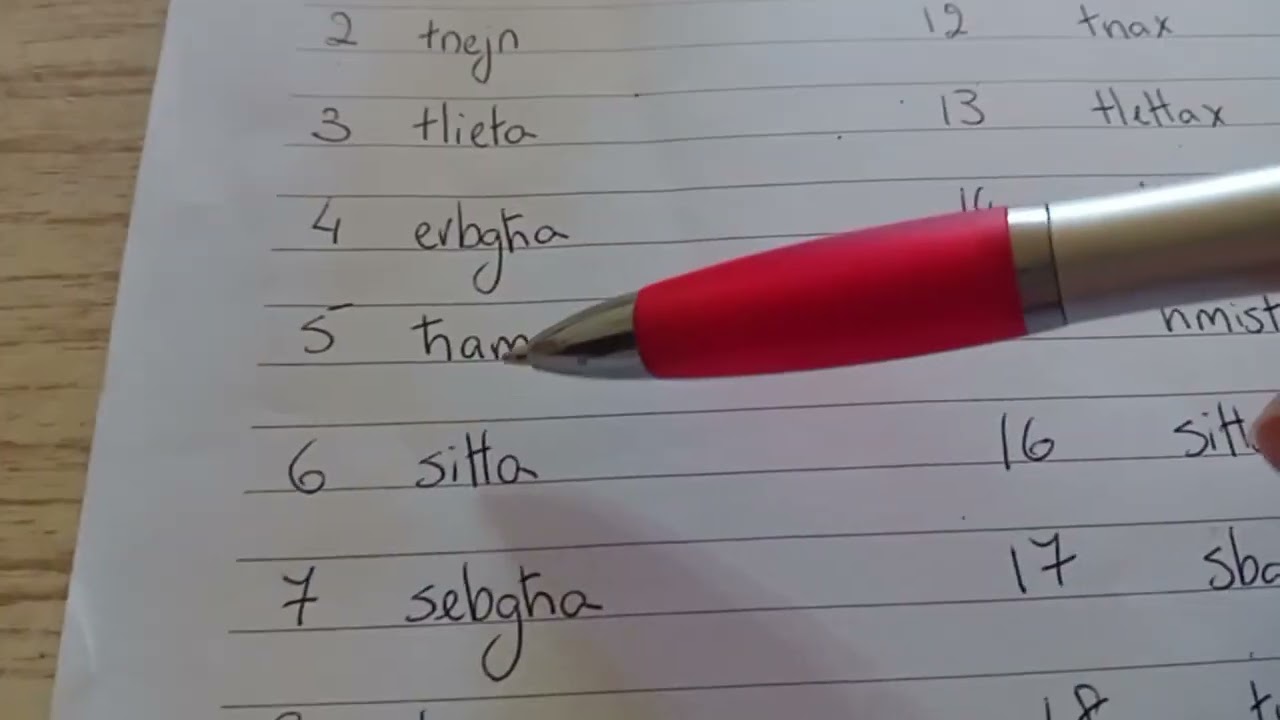 2 tnejn 12 tnax
3 tlieta 13 tlettax
4 erbgħa
5 ħam
6 sitta 16 sitt
7 sebgħa 17
18